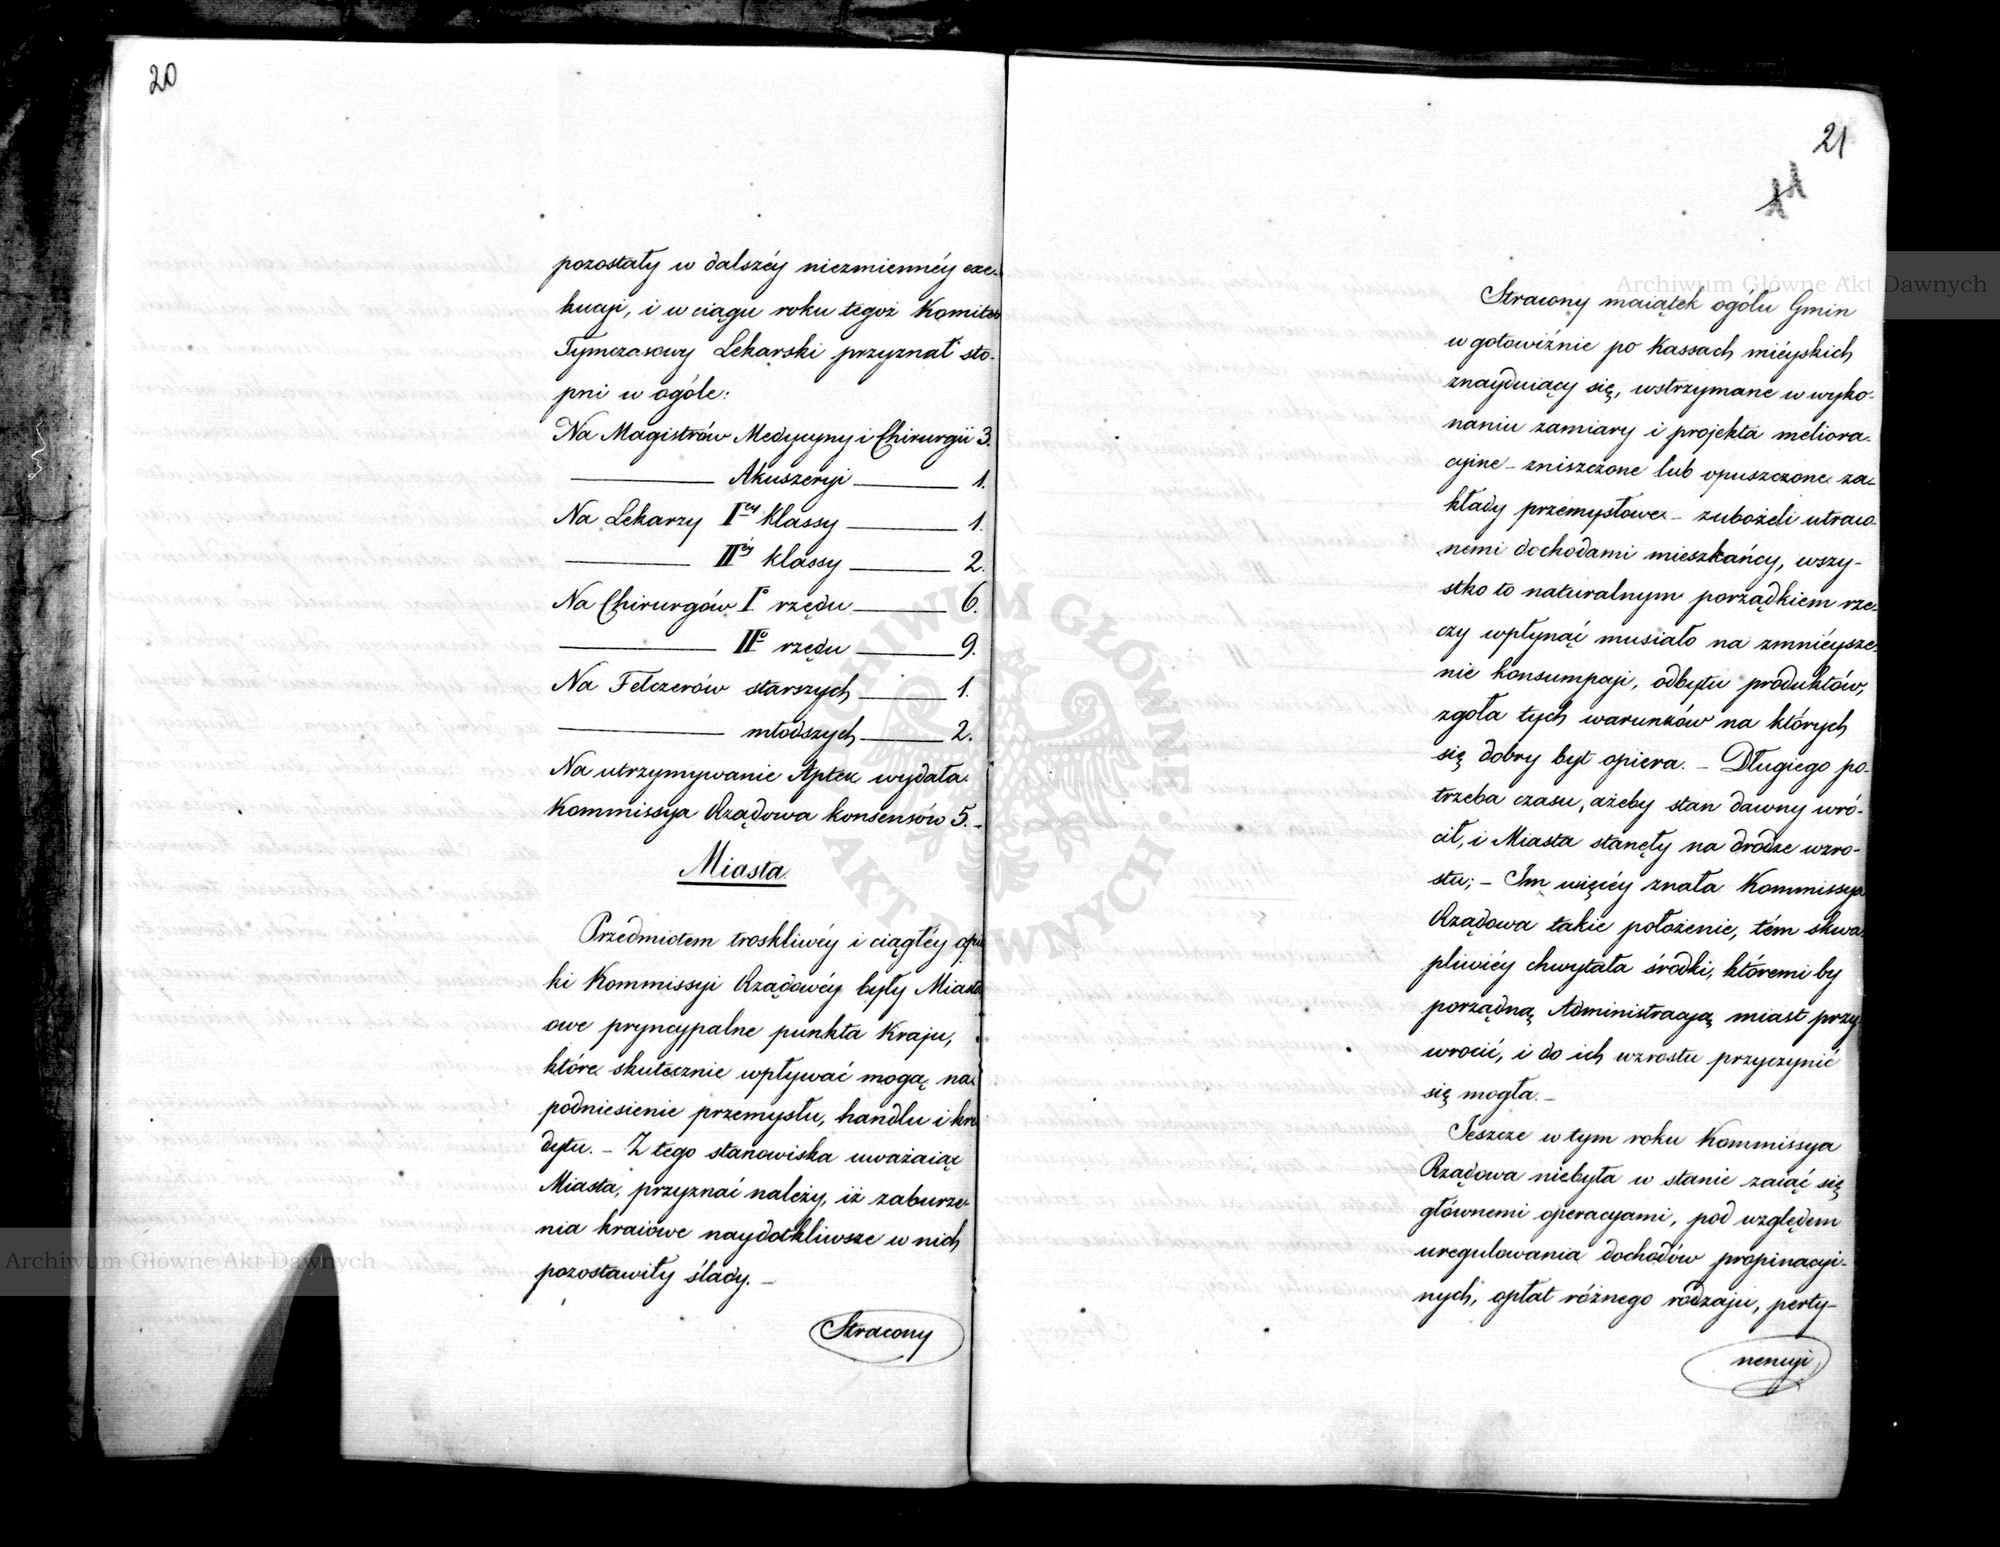 20
pozostały w dalszéy niezmiennéy exe-
kucyi, i w ciągu roku tegoż Komitet
Tymczasowy Lekarski przyznał sto-
pni w ogóle:
Na Magistrów Medycyny i Chirurgii 3.
——— Akuszeryi ——— 1.
Na Lekarzy I<sup>éy</sup> klassy ——— 1.
——— II<sup>éy</sup> klassy ——— 2.
Na Chirurgów I° rzędu ——— 6.
——— II° rzędu ——— 9.
Na Felczerów starszych ——— 1.
——— młodszych ——— 2.
Na utrzymywanie Aptek wydała
Kommissya Rządowa konsensów 5. –
Miasta.
Przedmiotem troskliwéy i ciągłéy opie
ki Kommissyi Rządowéy były Miasta
owe pryncypalne punkta Kraju,
które skutecznie wpływać mogą na
podniesienie przemysłu, handlu i kre
dytu. – Z tego stanowiska uważaiąc
Miasta, przyznać należy, iż zaburze-
nia kraiowe naydotkliwsze w nich
pozostawiły ślady. –
Stracony
21
11
Stracony maiątek ogółu Gmin
w gotowiźnie po Kassach miéyskich
znayduiący się, wstrzymane w wyko-
naniu zamiary i projekta meliora-
cyine – zniszczone lub opuszczone za-
kłady przemysłowe – zubożeli utraco-
nemi dochodami mieszkańcy, wszy-
stko to naturalnym porządkiem rze-
czy wpłynąć musiało na zmniéysze-
nie konsumpcyi, odbytu produktów,
zgoła tych warunków na których
się dobry byt opiera. – Długiego po-
trzeba czasu, ażeby stan dawny wró-
cił, i Miasta stanęły na drodze wzro-
stu; – Im więcéy znała Kommissya
Rządowa takie położenie, tém skwa-
pliwiéy chwytała środki, któremi by
porządną Administracyą miast przy-
wrocić, i do ich wzrostu przyczynić
się mogła. –
Jeszcze w tym roku Kommissya
Rządowa niebyła w stanie zaiąć się
głównemi operacyami, pod względem
uregulowania dochodów propinacyi-
nych, opłat różnego rodzaju, perty-
nencyi
Archiwum Główne Akt Dawnych
Archiwum Główne Akt Dawnych
ARCHIWUM GŁÓWNE AKT DAWNYCH